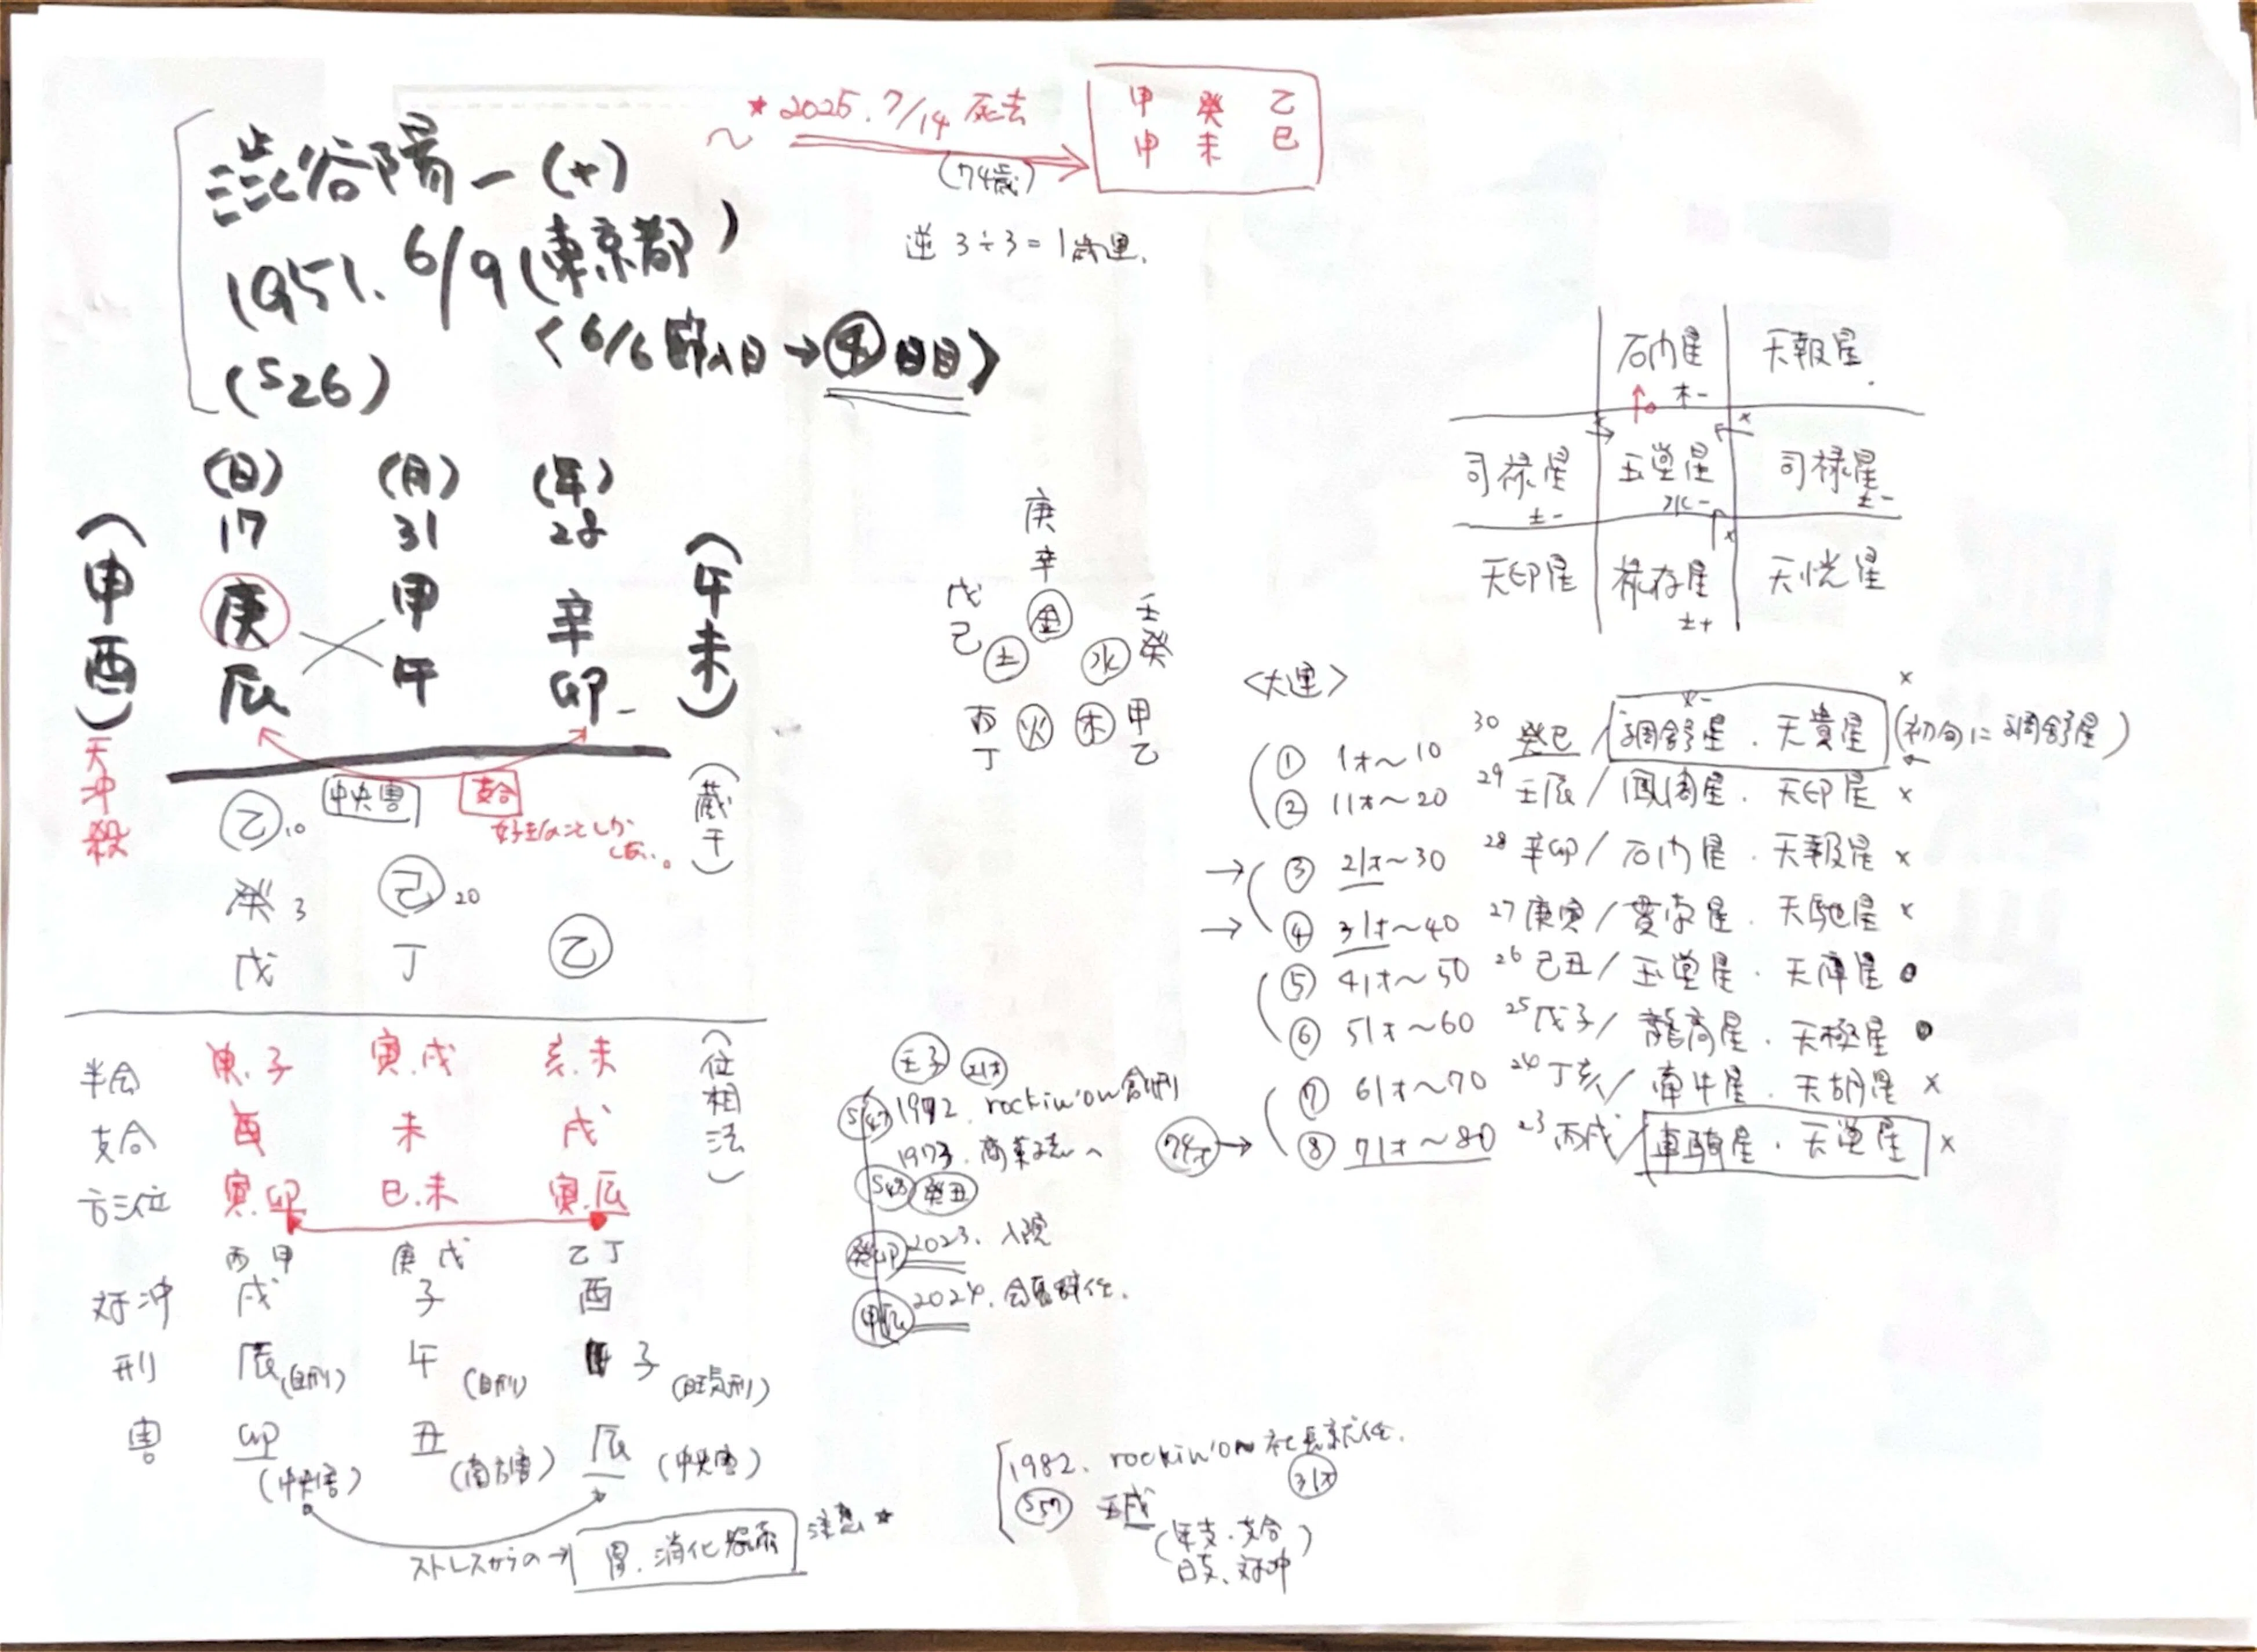 ★2025.7/14 死去
(74歳)
甲 癸 乙
申 未 巳
澁谷陽一(+)
1951.6/9(東京都)
(S26)
<6/6節入日→④日目>
逆 3÷3=1歳運.
(日) (月) (年)
17 31 28
庚 甲 辛
辰 午 卯
(申酉)
天冲殺
(午未)
中央害
支合
好きなことしかしない。
(蔵干)
乙10
癸3 己20
戊 丁 乙
(位相法)
半会 申.子 寅.戌 亥.未
支合 酉 未 戌
方三位 寅.卯 巳.未 寅.辰
丙 甲 庚 戊 乙 丁
対冲 戌 子 酉
刑 辰(自刑) 午(自刑) 子(旺気刑)
害 卯(中央害) 丑(南方害) 辰(中央害)
ストレスからの→ 胃.消化器系 注意★
庚
辛
戊 己 金 壬 癸
土 水
丙 丁 火 木 甲 乙
石門星 木- 天報星
司禄星 土- 玉堂星 水- 司禄星 土-
天印星 禄存星 土+ 天恍星
<大運>
① 1才〜10 30 癸巳/調舒星.天貴星 (初旬に調舒星) ×
② 11才〜20 29 壬辰/鳳閣星.天印星 ×
→③ 21才〜30 28 辛卯/石門星.天報星 ×
→④ 31才〜40 27 庚寅/貫索星.天馳星 ×
⑤ 41才〜50 26 己丑/玉堂星.天庫星
⑥ 51才〜60 25 戊子/龍高星.天極星
⑦ 61才〜70 24 丁亥/牽牛星.天胡星 ×
74才→⑧ 71才〜80 23 丙戌/車騎星.天堂星 ×
壬子 21才
S47 1972. rockin'on創刊
1973. 商業誌へ
S48 癸丑
癸卯 2023. 入院
甲辰 2024. 会長辞任.
1982. rockin'on 社長就任.
31才
S57 壬戌
(年支.支合
日支.対冲)